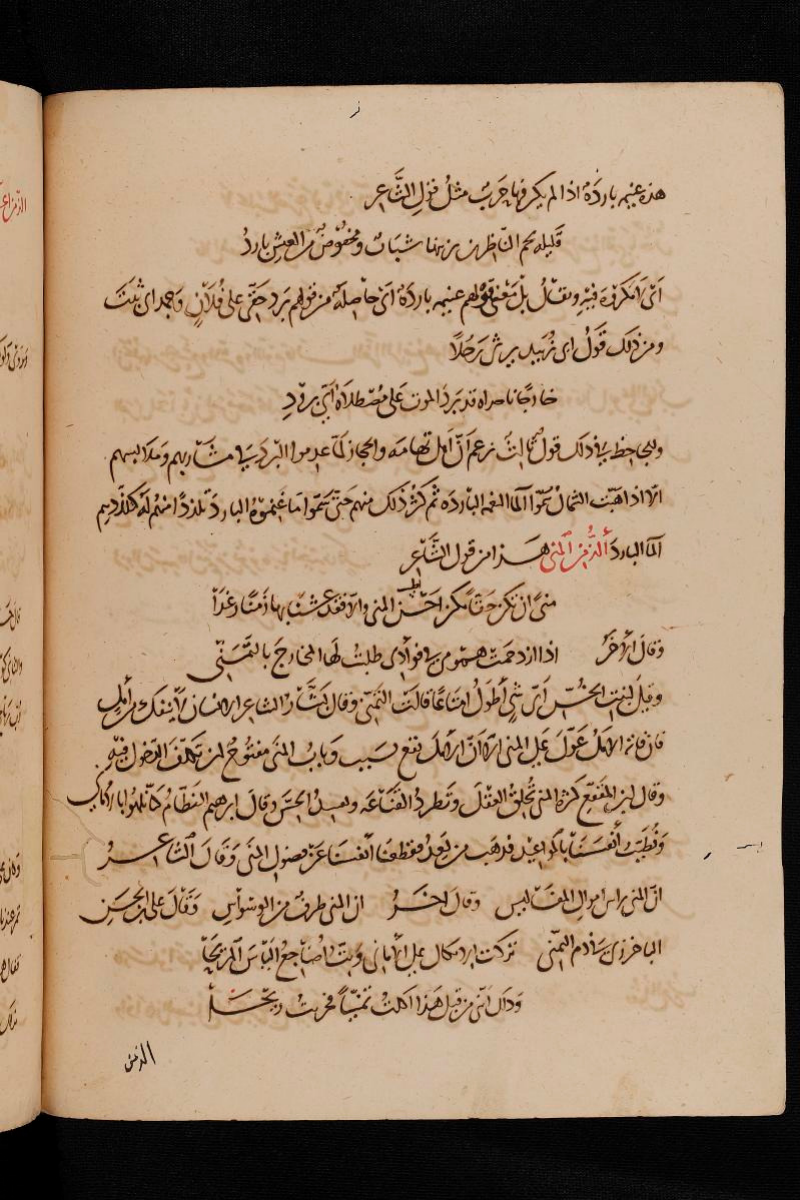 هذه غنيمة باردة اذا لم يكن فيها حرب مثل قول الشاعر
قليلة لحم الناظرين يزينها شباب ومخفوض من العيش بارد
اى لا مكروه فيه ويقال بل معنى قولهم غنيمة باردة اى حاصلة من قولهم برد حقى على فلان وجمد اى ثبت
ومن ذلك قول ابى زبيد يرثى رجلا
خارجا ناجذاه قد برد الموت على مصطلاه اى برود
وللجاحظ فى ذلك قول ثالث زعم ان اهل تهامة والحجاز لما عدموا البرد فى مشاربهم وملابسهم
الا اذا هبت الشمال سموا الماء النعمة الباردة ثم كثر ذلك منهم حتى سموا ما غنموه البارد تلذذا منهم له كتلذذهم
الماء البارد ألذ من المنى هذا من قول الشاعر
منى ان تكن حقا تكن احسن المنى والا فقد عشنا بها زمنا رغدا
وقال الآخر اذا ازدحمت همومى فى فوادى طلبت لها المخارج بالتمنى
وقيل لبنت الخس اى شى أطول امتاعا قالت التمنى وقال بشار الشاعر الانسان لا ينفك من أمل
فان فاته الامل عول على المنى الا ان الامل يقع بسبب وباب المنى مفتوح لمن تكلف الدخول فيه
وقال ابن المقفع كثرة المنى تخلق العقل وتطرد القناعة وتفسد الحس وقال ابرهيم النظام كنا نلهوا بالامانى
وتطيب أنفسنا بالمواعيد فذهب من يعد فقطعنا أنفسنا عن فضول المنى وقال الشاعر
ان المنى راس اموال المفاليس وقال اخر ان المنى طرف من الوسواس وقال على بن الحسن
الباخرزى فى ذم التمنى تركت الاتكال على الامانى وبت أضاجع الياس المريحا
وذاك اننى من قبل هذا اكلت تمنيا فخريت ريحا
الذمن